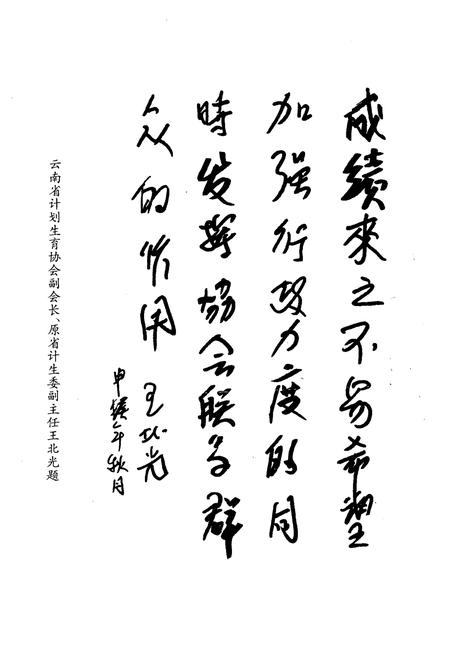 成績來之不易希望
加强行政力度的同
時发挥協会联系群
众的作用 王北光
申猴年秋月
云南省计划生育协会副会长、原省计生委副主任王北光题